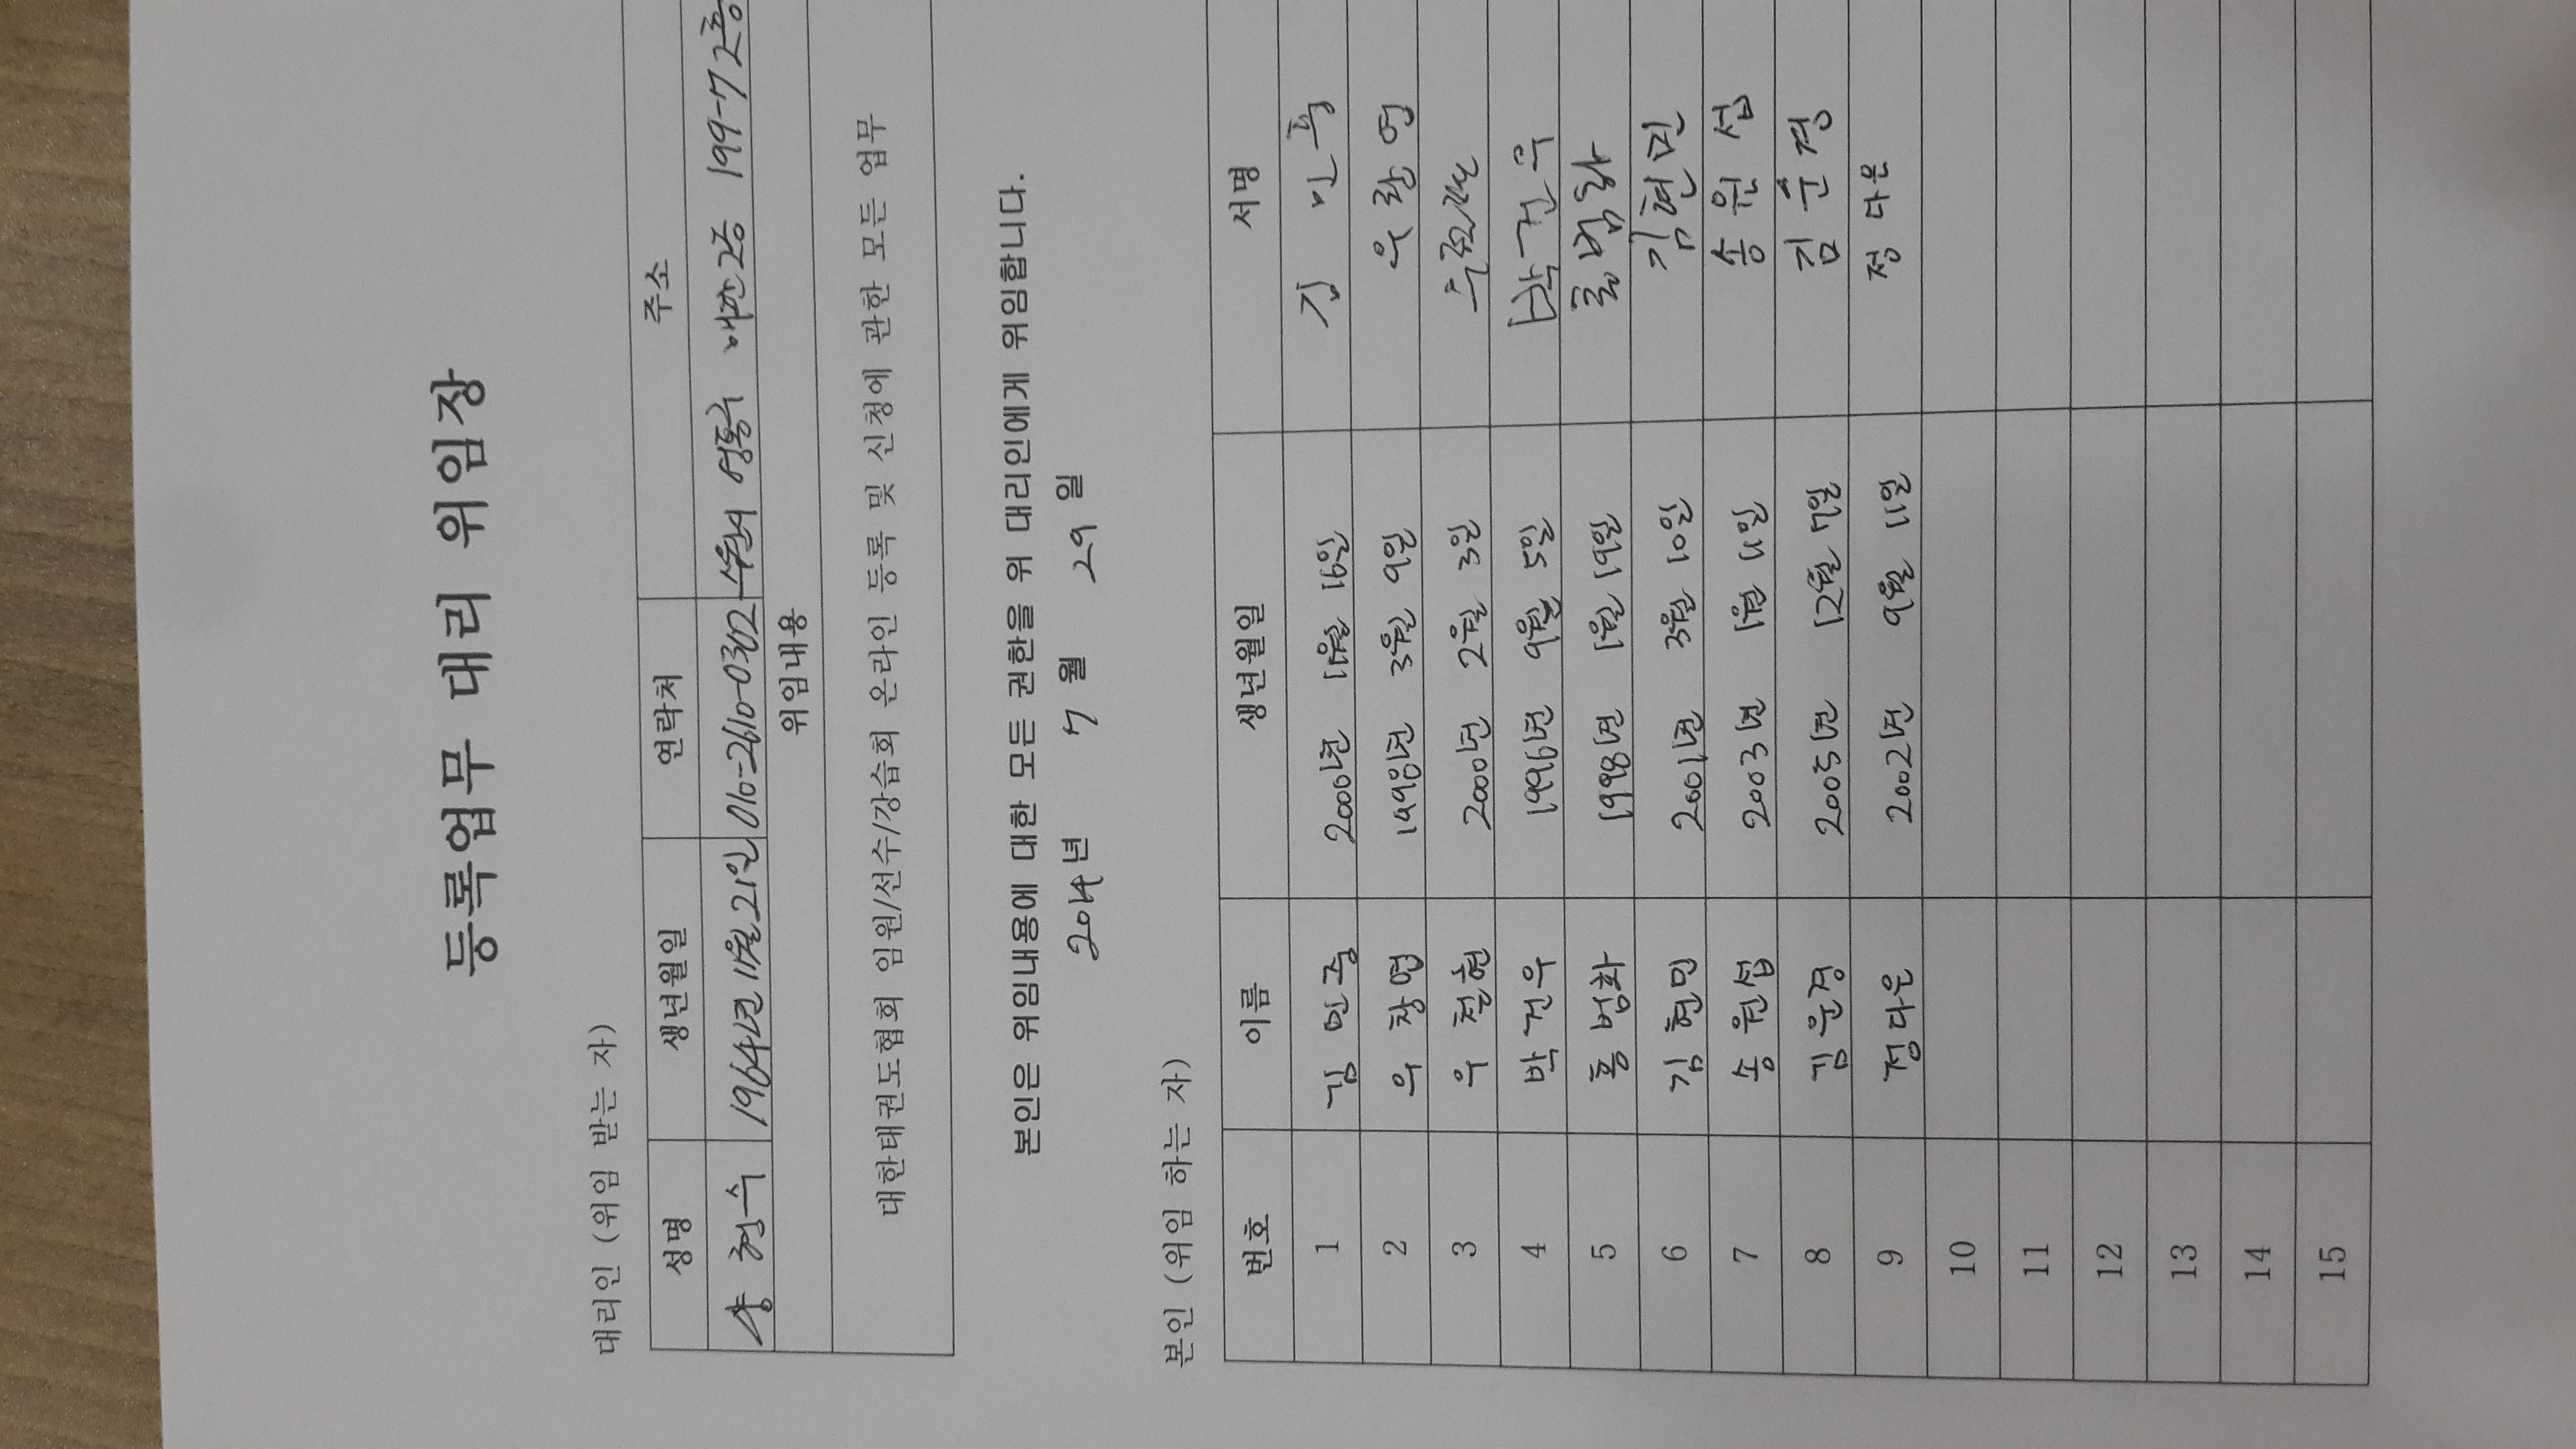 등록업무 대리 위임장
대리인 (위임 받는 자)
성명 생년월일 연락처 주소
송현수 1964년 11월 21일 010-2610-0302 수원시 영통구 매탄2동 199-7 2층
위임내용
대한태권도협회 임원/선수/강습회 온라인 등록 및 신청에 관한 모든 업무
본인은 위임내용에 대한 모든 권한을 위 대리인에게 위임합니다.
2014년 7월 29일
본인 (위임 하는 자)
번호 이름 생년월일 서명
1 김민중 2000년 11월 16일
2 우창엽 1998년 3월 9일
3 우철현 2000년 2월 3일
4 박건우 1996년 9월 5일 박건우
5 홍범화 1998년 1월 19일 홍범화
6 김현민 2001년 3월 10일 김현민
7 송원섭 2003년 1월 11일 송원섭
8 김윤경 2005년 12월 7일 김윤경
9 정다은 2002년 9월 11일 정다은
10
11
12
13
14
15